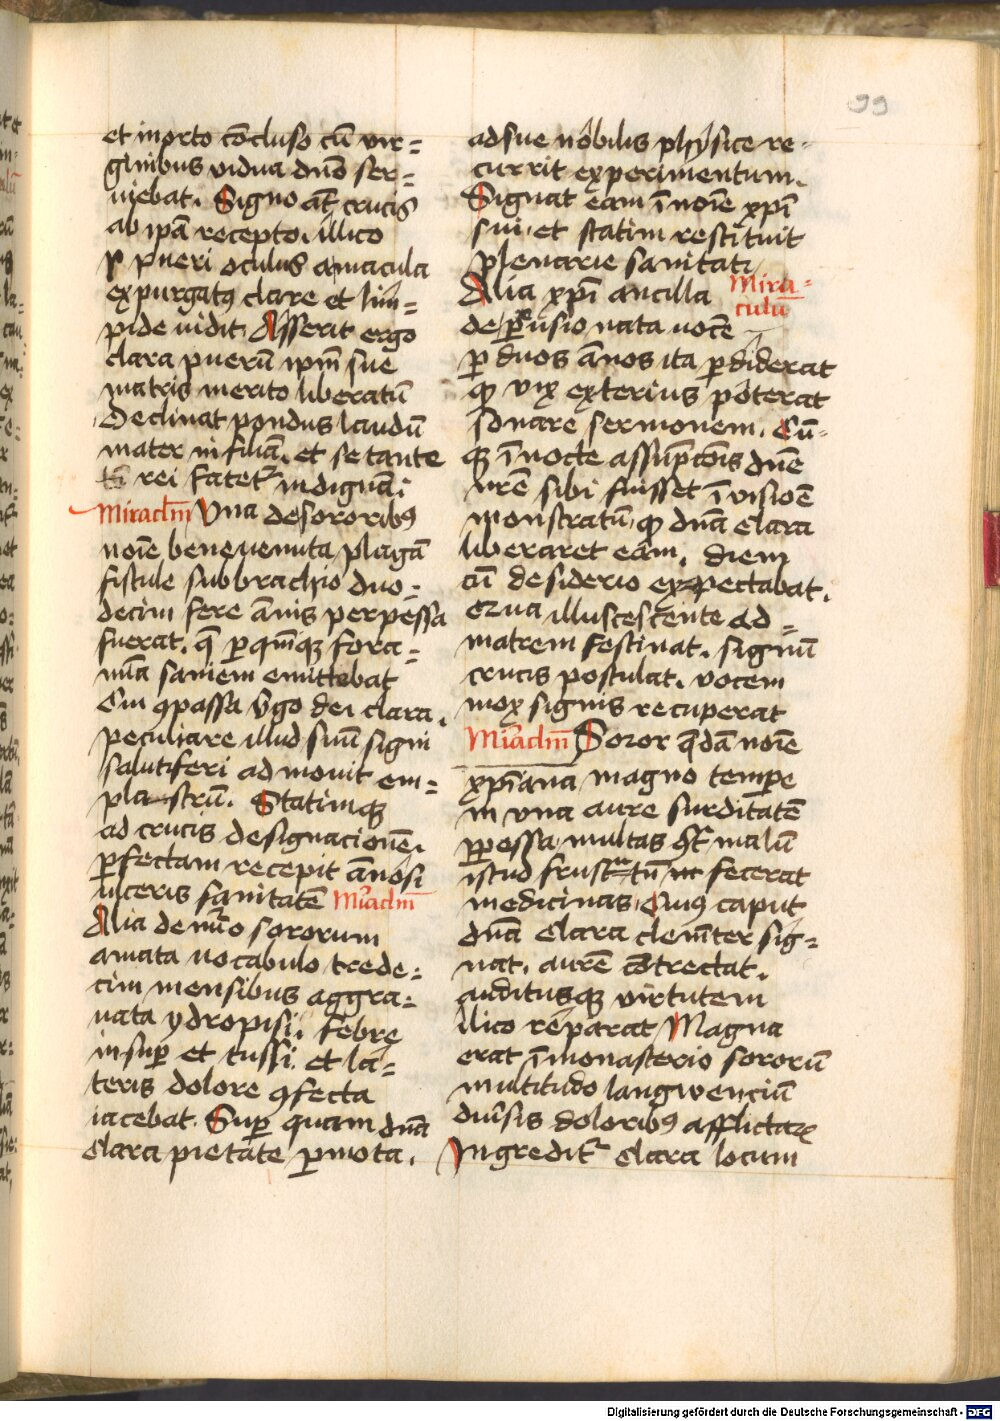 99
et in orto cōcluso cū vir=
ginibus vidua dn̄o ser=
viebat. Signo aūt crucis
ab ip̄a recepto. illico
pueri oculus a macula
expurgatꝰ clare et lim=
pide vidit. Asserit ergo
clara puerū ip̄m sue
matris merito liberatū
Declinat pondus laudū
mater in filiā. et se tante
rei fatet᷑ indignā.
Miraclm̄ Vna de sororibꝰ
noīe benevenuta plagā
fistule sub brachio duo=
decim fere ānis perpessa
fuerat. q̄ ꝑ qm̄qꝫ fora=
mīa saniem emittebat
Cui ꝯpassa v̄go dei clara.
peculiare illud suū signi
salutiferi admovit em=
plastrū. Statimqꝫ
ad crucis designacionē.
ꝑfectam recepit ānosi
ulceris sanitatē Mīaclm̄
Alia de nūo sororum
amata vocabulo trede=
cim mensibus aggra=
vata ydropisi. febre
insuꝑ et tussi. et la=
teris dolore ꝯfecta
iacebat. Suꝑ quam dn̄a
Clara pietate ꝑmota.
ad sue nobilis physice re=
currit experimentum.
Signat eam ī noīe xp̄i
sui. et statim restituit
plenarie sanitati
Alia xp̄i ancilla Mira=
culū
de ꝑusio nata vocē
ꝑ duos ānos ita ꝑdiderat
ꝙ vix exterius poterat
sonare sermonem. Cū=
qꝫ ī nocte assūpcōis dn̄e
nr̄e sibi fuisset ī visiōe
monstratū ꝙ dn̄a Clara
liberaret eam. diem
cū desiderio expectabat.
illuscescente ad=
matrem festinat. signū
crucis postulat. vocem
mox signis recuperat
Mīaclm̄ Soror q̄dā noīe
xp̄iana magno tempe
in vna aure surditatē
ꝑpessa multas malū
istud frustra fecerat
medicinas. Cuiꝰ caput
dn̄a Clara clemēter sig=
nat. aurē cōtrectat.
auditusqꝫ virtutem
ilico reparat Magna
erat ī monasterio sororū
multitudo langwenciū
diūsis doloribꝰ afflictaꝝ
Ingredit᷑ Clara locum
Digitalisierung gefördert durch die Deutsche Forschungsgemeinschaft - DFG